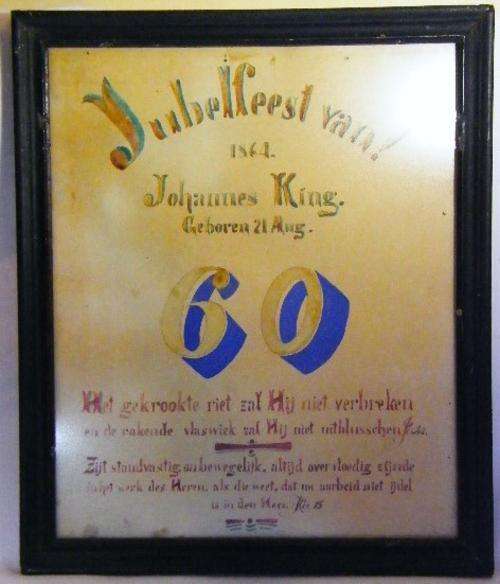 Jubelfeest van!
1864.
Johannes King.
Geboren 21 Aug.
60
Het gekrookte riet zal Hij niet verbreken
en de rakende vlaswiek zal Hij niet uitblusschen
Zijt standvastig, onbewegelijk, altijd overvloedig zijnde
in het werk des Heeren, als die weet, dat uw aarbeid niet ijdel
is in den Heer. Kor 15